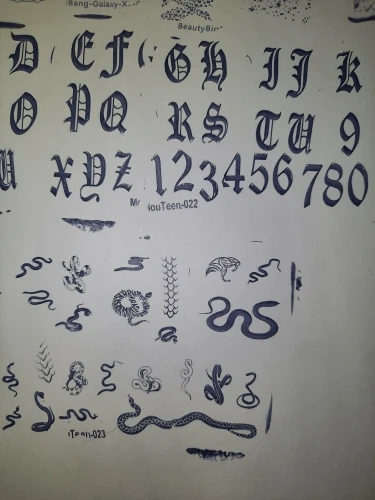 Bang-Galaxy-X
BeautyBi
D E F G H I J K
O P Q R S T U 9
U X Y Z 1 2 3 4 5 6 7 8 0
uTeen-022
Teen-023